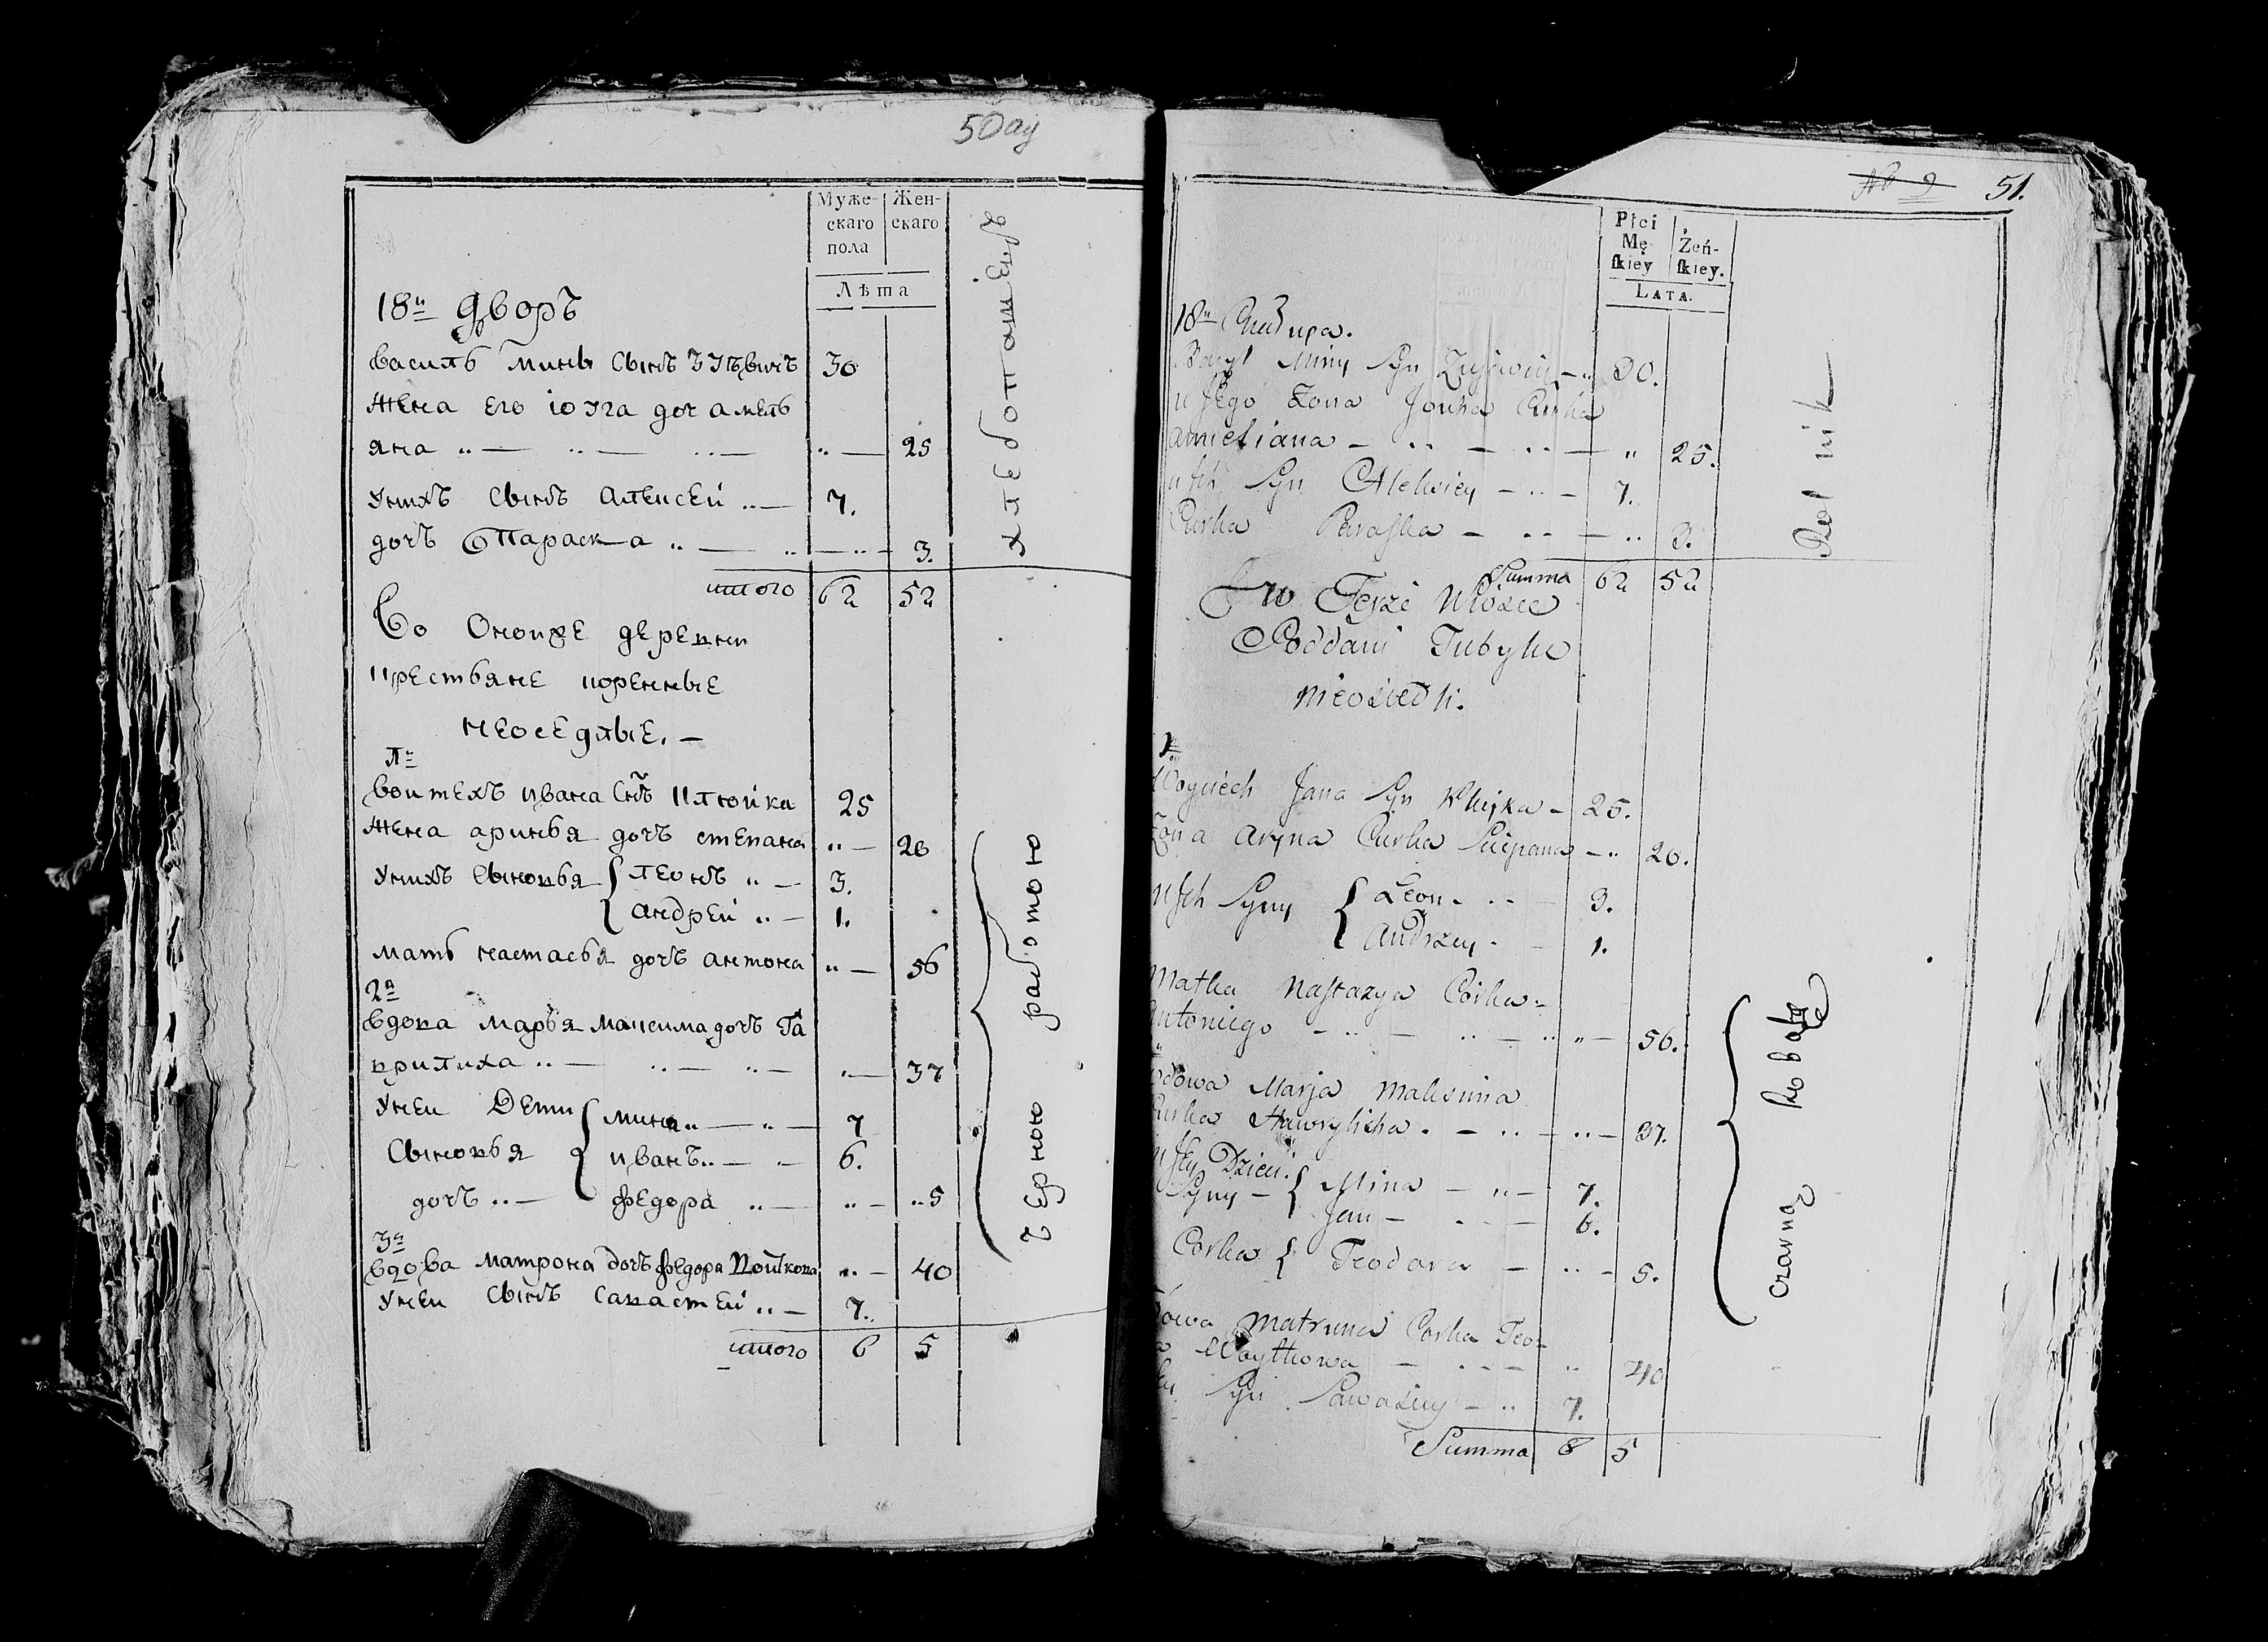 50ay
Муже-
скаго
пола
Жен-
скаго
Лѣта
хлебопашецъ
18й дворъ
василь мины сынъ зуѣвичъ 30
жена его юзга доч амель
яна „ — „ — „ — „ — 25
унихъ сынъ алексей „ — 7.
дочъ Параска „ — „ — „ — 3.
итого 62 52
Во Оноиже деревни
крестьяне коренные
неоседлые. —
1й
воитехъ ивана снъ клюйка 25
жена аринья дочъ степана „ — 20
унихъ сыновья { леонъ „ — 3.
андрей „ — 1.
мать настасья дочъ антона „ — 56
2я
вдова марья максима дочъ Га
врилиха „ — „ — „ — „ — 37
унеи Дети { мина „ — „ — 7
Сыновья иванъ „ — „ — 6.
дочъ „ — федора „ — „ — „ 5
3я
вдова матрона дочъ федора Войткова „ — 40
унеи сынъ савастей „ — 7.
итого 6 5
черною работою
№ 9 51.
Płci
Mę-
ſkiey
Żeń-
ſkiey.
LATA.
Rolnik
18
Bazyl Miny Syn Zujewicz — „ 30.
u Jego Zona Jouha Curka
ameliana — „ — „ — „ 25.
u Ich Syn Alekſiey — „ — 7.
Curka Paraſka — „ — „ 3.
Summa 62 52
w Teyże Wiosce
Poddani Tubylce
nieosiedli.
1
Woyciech Jana Syn Kluyka — 25.
Zona Aryna Curka Sciepana — „ 20.
u Ich Syny { Leon. „ — 3.
Andrzey. — 1.
Matka Naſtazya Corka
Antoniego — „ — „ — „ „ — 56.
dowa Marja Maksima
Curka Hawrylicha. — „ — „ — 37.
u Iey Dzieci.
Syny — { Mina — „ — 7.
Jan — „ — 6.
Corka { Teodora — „ — 5.
dowa Matruna Corka Teo-
Woytkowa — „ — „ 40
Syn Sawaściey — „ 7.
Summa 6 5
czarną Robotą